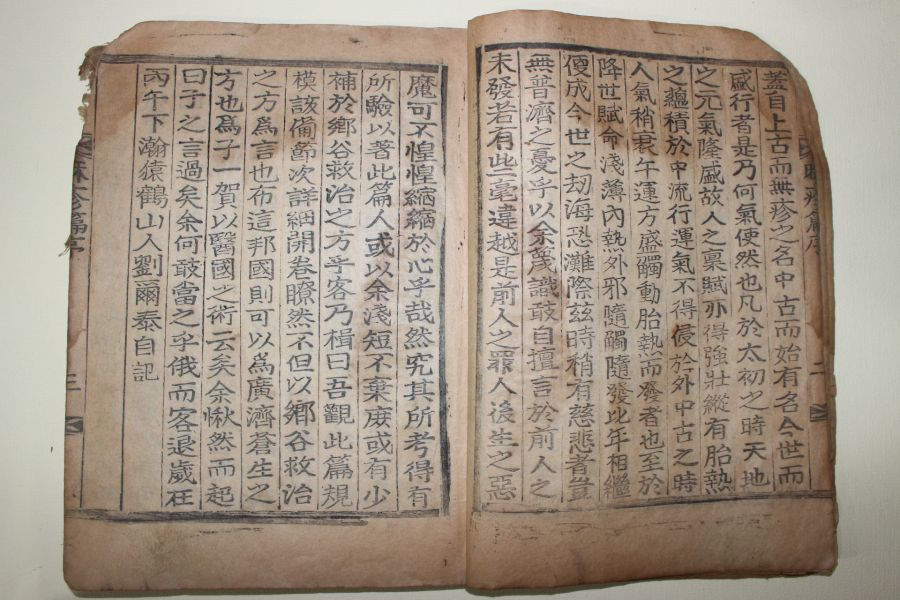 蓋自上古而無疹之名中古而始有名今世而
盛行者是乃何氣使然也凡於太初之時天地
之元氣隆盛故人之禀賦亦得強壯縱有胎熱
之蘊積於中流行運氣不得侵於外中古之時
人氣稍衰午運方盛觸動胎熱而發者也至於
降世賦命淺薄內熱外邪隨觸隨發比年相繼
便成今世之劫海恐灘際玆時稍有慈悲者豈
無普濟之憂乎以余蔑識敢自擅言於前人之
未發者有些毫違越是前人之罪人後生之惡
魔可不惶惶縮縮於心乎哉然究其所考得有
所驗以著此篇人或以余淺短不棄庶或有少
補於鄉谷救治之方乎客乃楫曰吾觀此篇規
模該備節次詳細開卷瞭然不但以鄉谷救治
之方為言也布這邦國則可以為廣濟蒼生之
方也為子一賀以醫國之術云矣余愀然而起
曰子之言過矣余何敢當之乎俄而客退歲在
丙午下瀚猿鶴山人劉爾泰自記
麻疹篇序
三
二